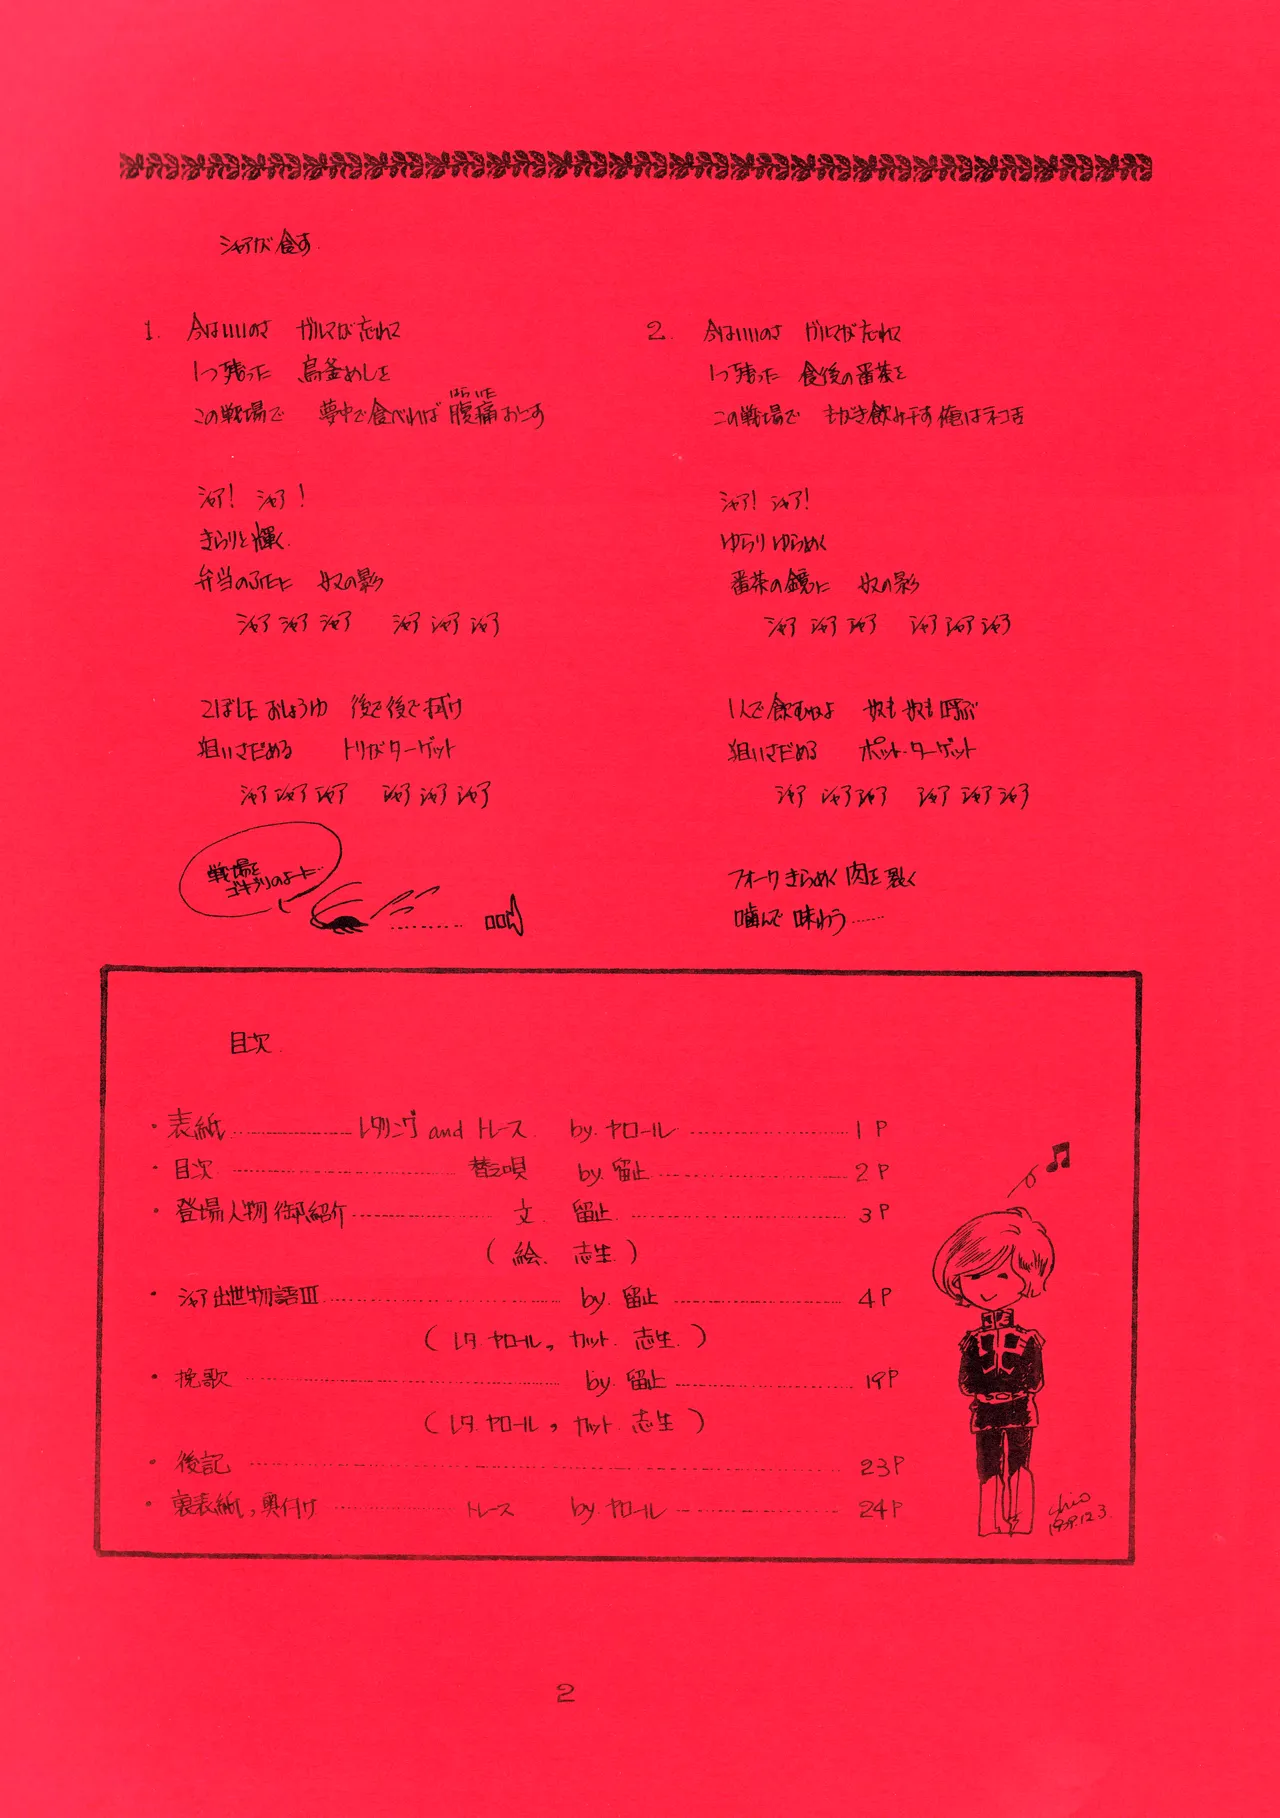 シャアが食す.
1. 今はいいのさ ガルマが忘れて
1つ残った 鳥釜めしを
この戦場で 夢中で食べれば 腹痛おこす
はらいた
シャア! シャア!
きらりと輝く
弁当のふたに 奴の影
シャア シャア シャア シャア シャア シャア
こぼした おしょうゆ 後で後で拭け
狙いさだめる トリがターゲット
シャア シャア シャア シャア シャア シャア
戦場を
ゴキブリのように…
2. 今はいいのさ ガルマが忘れて
1つ残った 食後の番茶を
この戦場で もがき飲み干す 俺はネコ舌
シャア! シャア!
ゆらりゆらめく
番茶の鏡に 奴の影
シャア シャア シャア シャア シャア シャア
1人で飲むなよ 奴も奴も呼ぶ
狙いさだめる ポット・ターゲット
シャア シャア シャア シャア シャア シャア
フォークきらめく 肉を裂く
噛んで 味わう……
目次.
・表紙 レタリング and トレース. by. ヤロール 1P
・目次 替え唄 by. 留止 2P
・登場人物御紹介 文. 留止. 3P
(絵. 志生)
・シャア出世物語III by. 留止 4P
(レタ. ヤロール, カット. 志生.)
・挽歌 by. 留止 19P
(レタ. ヤロール, カット. 志生)
・後記 23P
・裏表紙, 奥付け トレース by. ヤロール 24P
2